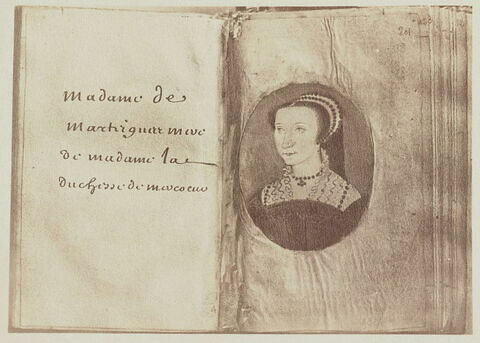 Madame de
Martiguas mere
de madame la
duchesse de mercoeur